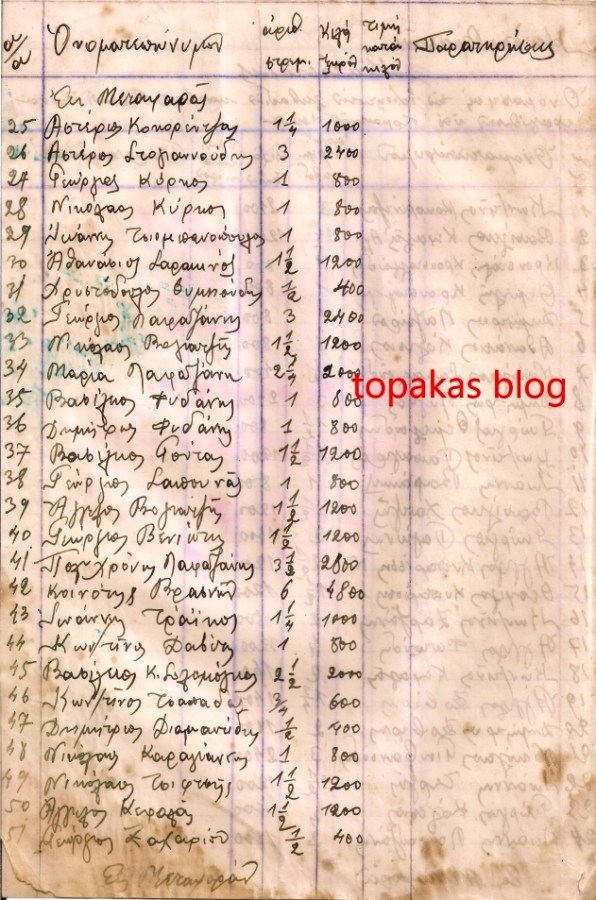 α/α Ὀνοματεπώνυμον ἀριθ. στρεμ. Κιλά ξηρά τιμή κατά κιλόν Παρατηρήσεις
Ἐκ Μεταφορᾶς
25 Ἀστέριος 1 1/4 1000
26 Ἀστέριος Στογιαννούδης 3 2400
27 Γεώργιος Κύρκος 1 800
28 Νικόλαος Κύρκος 1 800
29 Ἰωάννης 1 800
30 Ἀθανάσιος Σαρακινός 1 1/2 1200
31 Χρυστόδουλος 1/2 400
32 Γεώργιος Παπαζάνης 3 2400
33 Νικόλαος Βογιατζῆς 1 1/2 1200
34 Μαρία Παπαζάνη 2000
topakas blog
35 Βασίλειος Φυδάνης 1 800
36 Δημήτριος Φυδάνης 1 800
37 Βασίλειος Γούτας 1 1/2 1200
38 Γεώργιος 1 800
39 Ἄγγελος Βογιατζῆς 1 1/2 1200
40 Γεώργιος Βενιώτης 1 1/2 1200
41 Πολυχρόνης Παπαζάνης 3 1/2 2800
42 Κοινότης Βρασνῶν 6 4800
43 Ἰωάννης Τράϊκος 1 1/4 1000
44 Κων/τῖνος 1 800
45 Βασίλειος Κ. 2 1/2 2000
46 Κων/τῖνος 3/4 600
47 Δημήτριος Διαμαντίδης 1/2 400
48 Νικόλαος Καραγιάννης 1 800
49 Νικόλαος Τσιφτσῆς 1 1/2 1200
50 Ἄγγελος Κεφαλᾶς 1 1/2 1200
51 Γεώργιος Ζαχαρίου 1/2 400
Εἰς Μεταφοράν